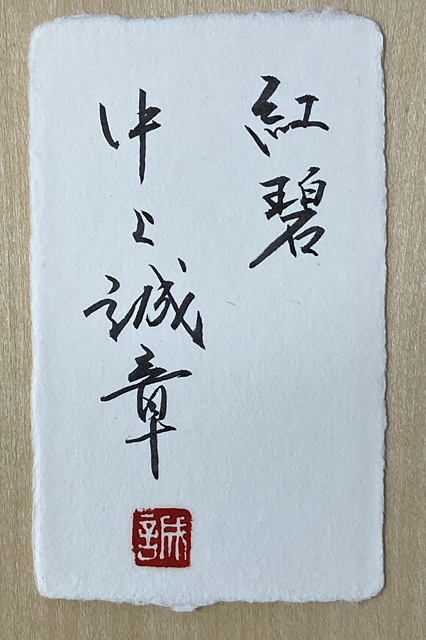 紅碧
中上誠章
誠